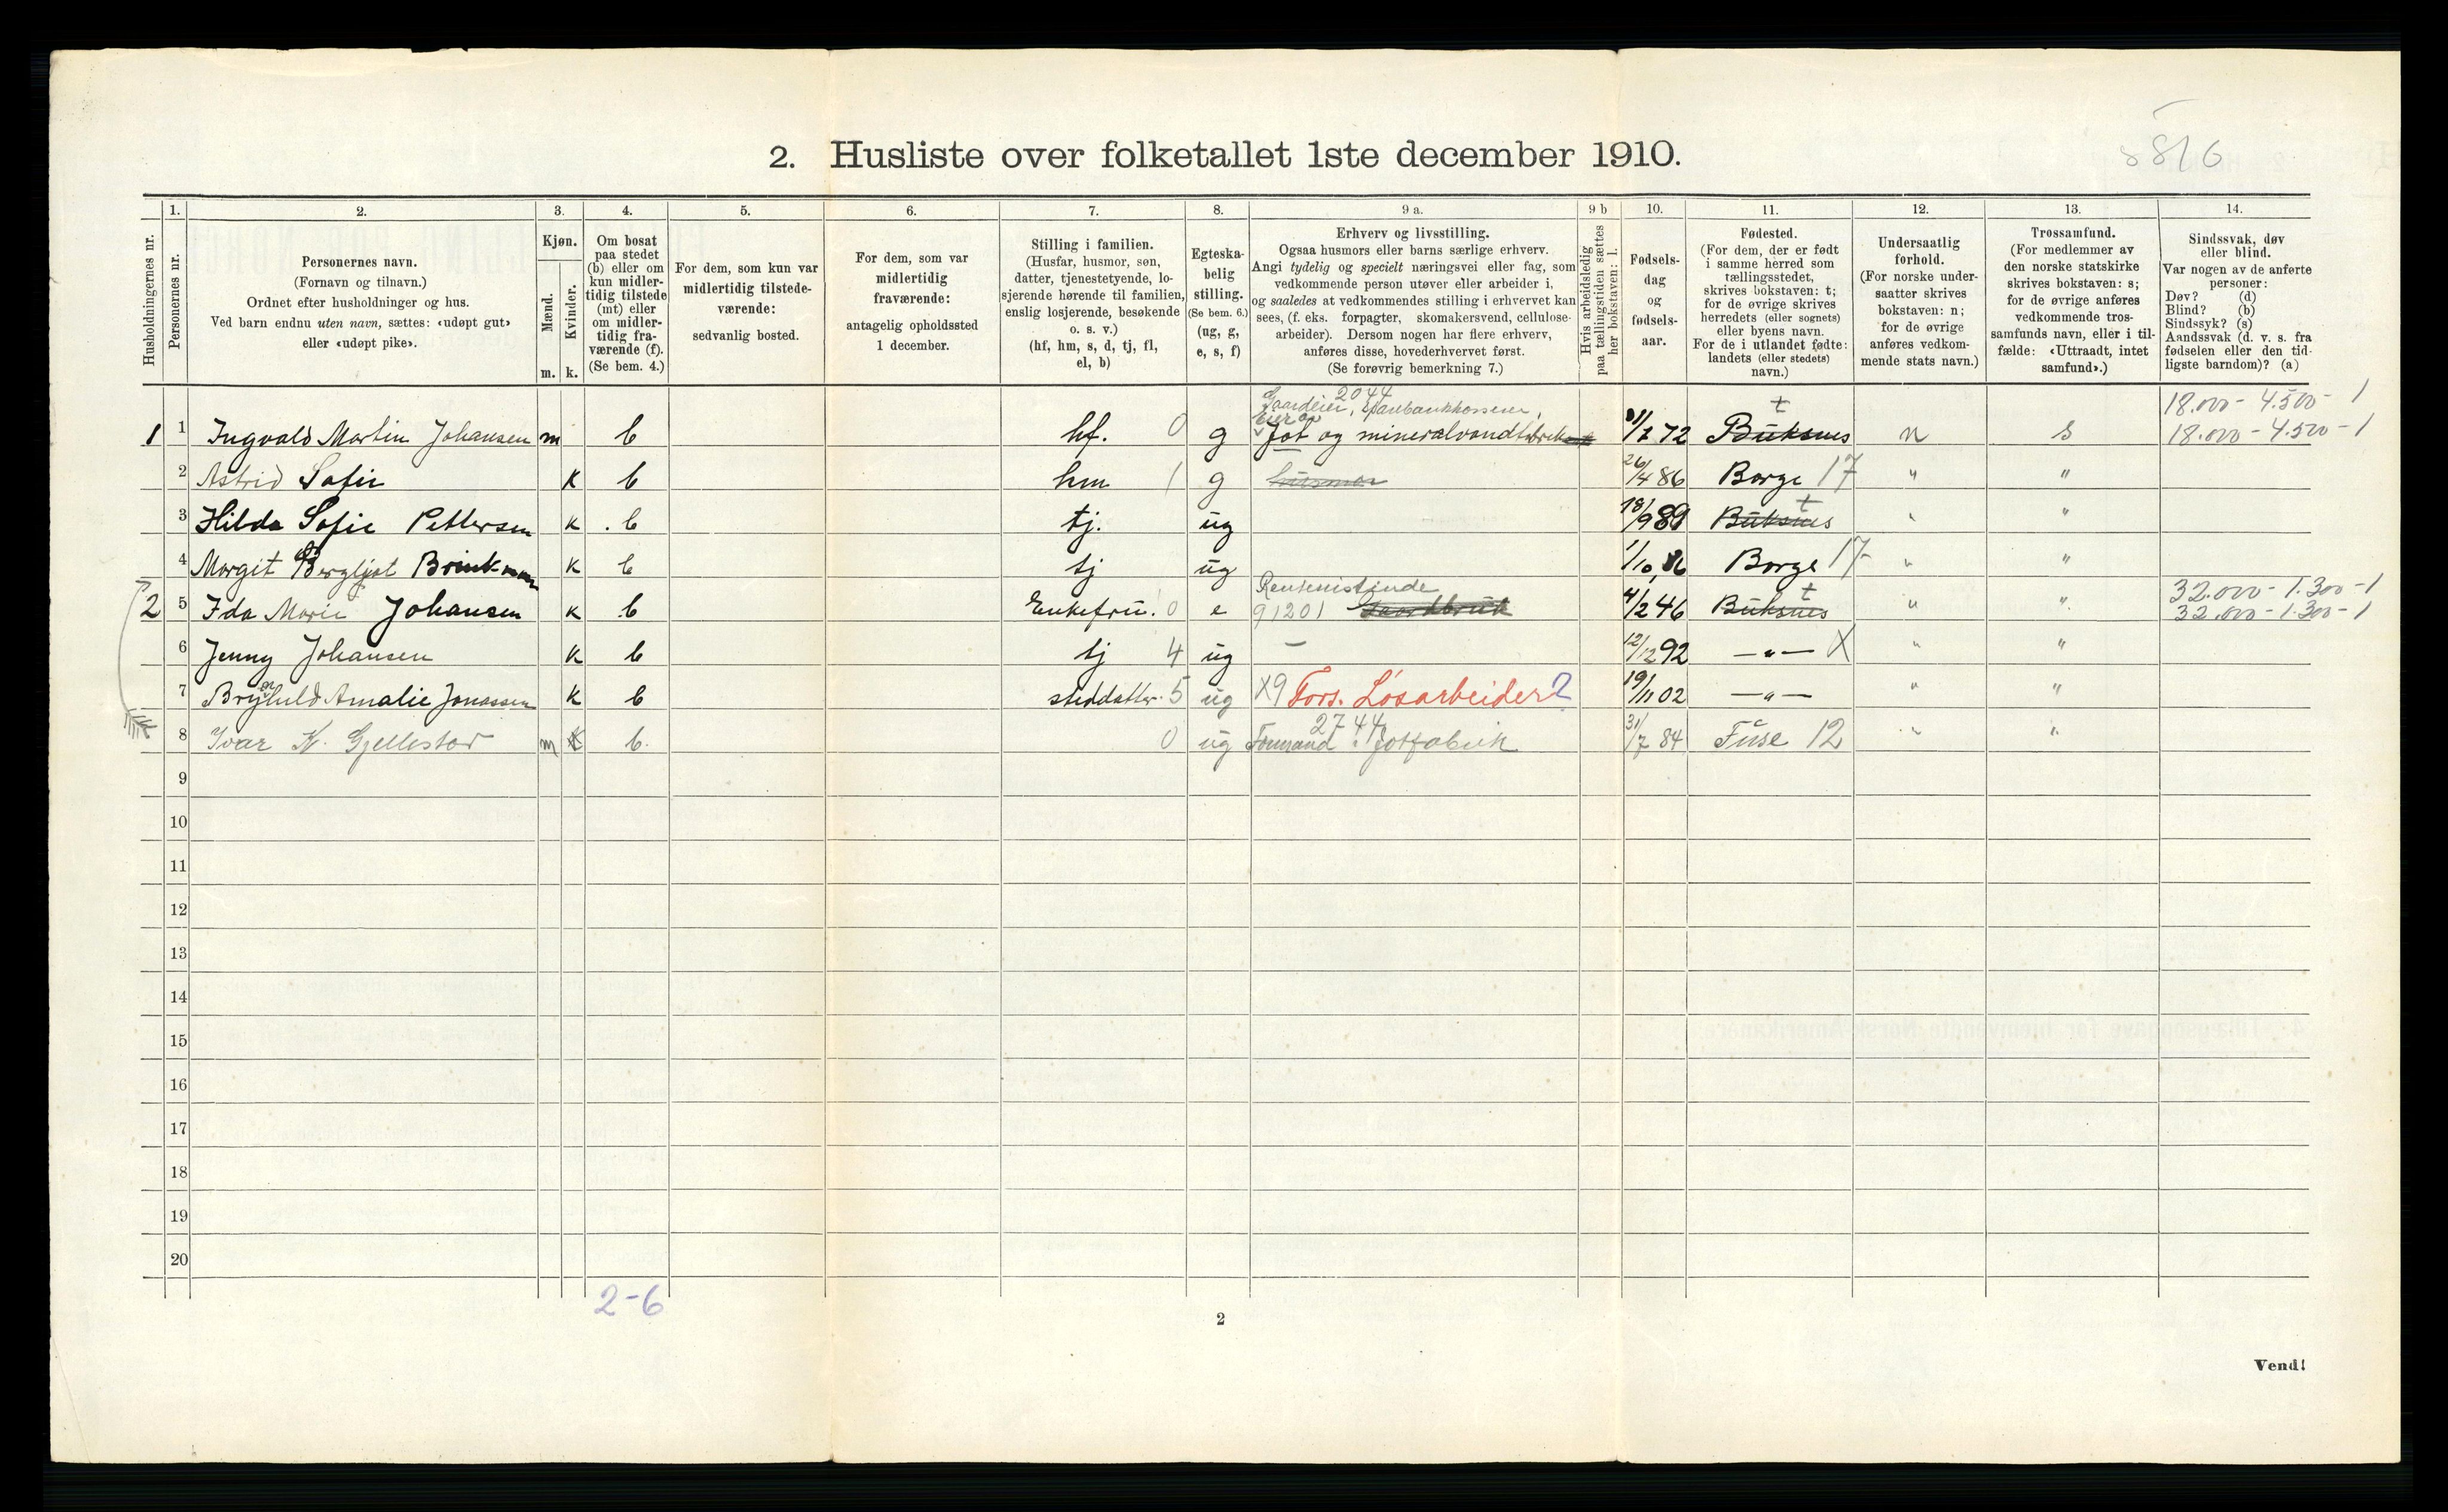 5816
2. Husliste over folketallet 1ste december 1910.
1. 2. 3. 4. 5. 6. 7. 8. 9 a. 9 b 10. 11. 12. 13. 14.
Husholdningernes nr.
Personernes nr.
Personernes navn.
(Fornavn og tilnavn.)
Ordnet efter husholdninger og hus.
Ved barn endnu uten navn, sættes: «udøpt gut»
eller «udøpt pike».
Kjøn.
Mænd.
Kvinder.
m. k.
Om bosat
paa stedet
(b) eller om
kun midler-
tidig tilstede
(mt) eller
om midler-
tidig fra-
værende (f).
(Se bem. 4.)
For dem, som kun var
midlertidig tilstede-
værende:
sedvanlig bosted.
For dem, som var
midlertidig
fraværende:
antagelig opholdssted
1 december.
Stilling i familien.
(Husfar, husmor, søn,
datter, tjenestetyende, lo-
sjerende hørende til familien,
enslig losjerende, besøkende
o. s. v.)
(hf, hm, s, d, tj, fl,
el, b)
Egteska-
belig
stilling.
(Se bem. 6.)
(ug, g,
e, s, f)
Erhverv og livsstilling.
Ogsaa husmors eller barns særlige erhverv.
Angi tydelig og specielt næringsvei eller fag, som
vedkommende person utøver eller arbeider i,
og saaledes at vedkommendes stilling i erhvervet kan
sees, (f. eks. forpagter, skomakersvend, cellulose-
arbeider). Dersom nogen har flere erhverv,
anføres disse, hovederhvervet først.
(Se forøvrig bemerkning 7.)
Hvis arbeidsledig
paa tællingstiden sættes
her bokstaven: l.
Fødsels-
dag
og
fødsels-
aar.
Fødested.
(For dem, der er født
i samme herred som
tællingsstedet,
skrives bokstaven: t;
for de øvrige skrives
herredets (eller sognets)
eller byens navn.
For de i utlandet fødte:
landets (eller stedets)
navn.)
Undersaatlig
forhold.
(For norske under-
saatter skrives
bokstaven: n;
for de øvrige
anføres vedkom-
mende stats navn.)
Trossamfund.
(For medlemmer av
den norske statskirke
skrives bokstaven: s;
for de øvrige anføres
vedkommende tros-
samfunds navn, eller i til-
fælde: «Uttraadt, intet
samfund».)
Sindssvak, døv
eller blind.
Var nogen av de anførte
personer:
Døv? (d)
Blind? (b)
Sindssyk? (s)
Aandssvak (d. v. s. fra
fødselen eller den tid-
ligste barndom)? (a)
2044
Gaardeier, Sparbankkasserer, t 18.000 - 4.500 - 1
eier av
1 1 Ingvald Martin Johansen m b hf. 0 g Jot og mineralvandfabrik 72 Buksnes n s 18.000 - 4.500 - 1
2 Astrid Sofie k b hm 1 g husmor 26/4 86 Borge 17 " "
t
3 Hilda Sofie Pettersen k b tj. ug 18/9 89 Buksnes " "
4 Margit Bergljot Brinkman k b tj ug 1/10 86 Borge 17 " "
Rentenistinde t 32.000 - 1.300 - 1
2 5 Ida Marie Johansen k b Enkefru. 0 e 91201 Gaardbruk 4/2 46 Buksnes " " 32.000 - 1.300 - 1
6 Jenny Johansen k b tj 4 ug — 12/12 92 — " — X " "
7 Brynhild Amalie Jonassen k b steddatter 5 ug X9 Fors. Løsarbeider? 19/11 02 — " — " "
2744
8 Ivar K. Gjellestad m k b. 0 ug Formand i Jotfabrik 31/7 84 Fuse 12 " "
9
10
11
12
13
14
15
16
17
18
19
20
2-6
2
Vend!